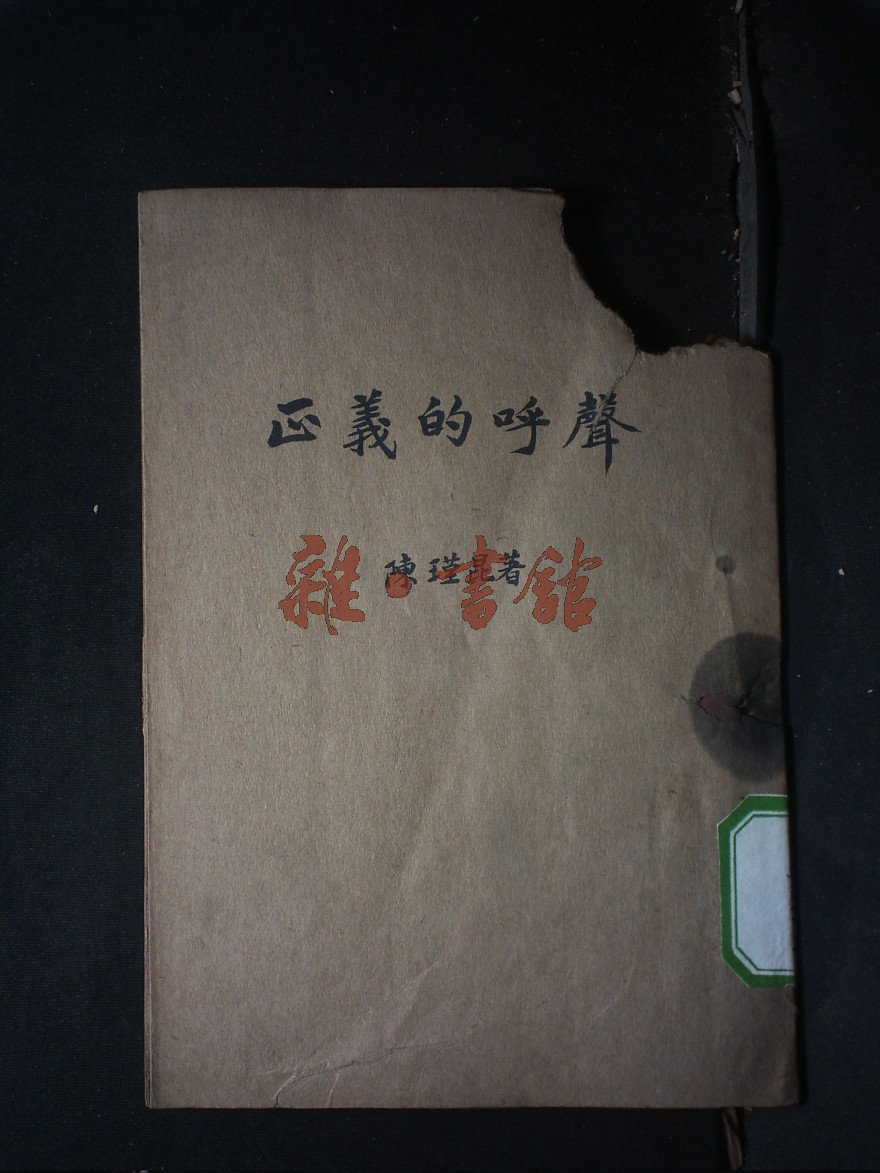 正義的呼聲
陳瑾昆著
雜·書館